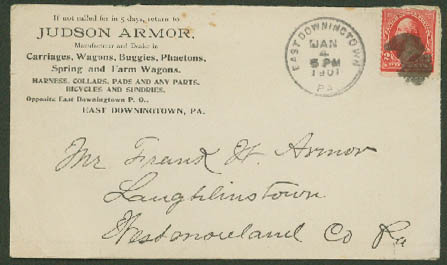 If not called for in 5 days, return to
JUDSON ARMOR,
Manufacturer and Dealer in
Carriages, Wagons, Buggies, Phaetons,
Spring and Farm Wagons.
HARNESS, COLLARS, PADS AND ANY PARTS.
BICYCLES AND SUNDRIES.
Opposite East Downingtown P. O.,
EAST DOWNINGTOWN, PA.
EAST DOWNINGTOWN
JAN
4
5 PM
1901
PA
Mr Frank W. Armor
Laughlinstown
Westmoreland Co Pa